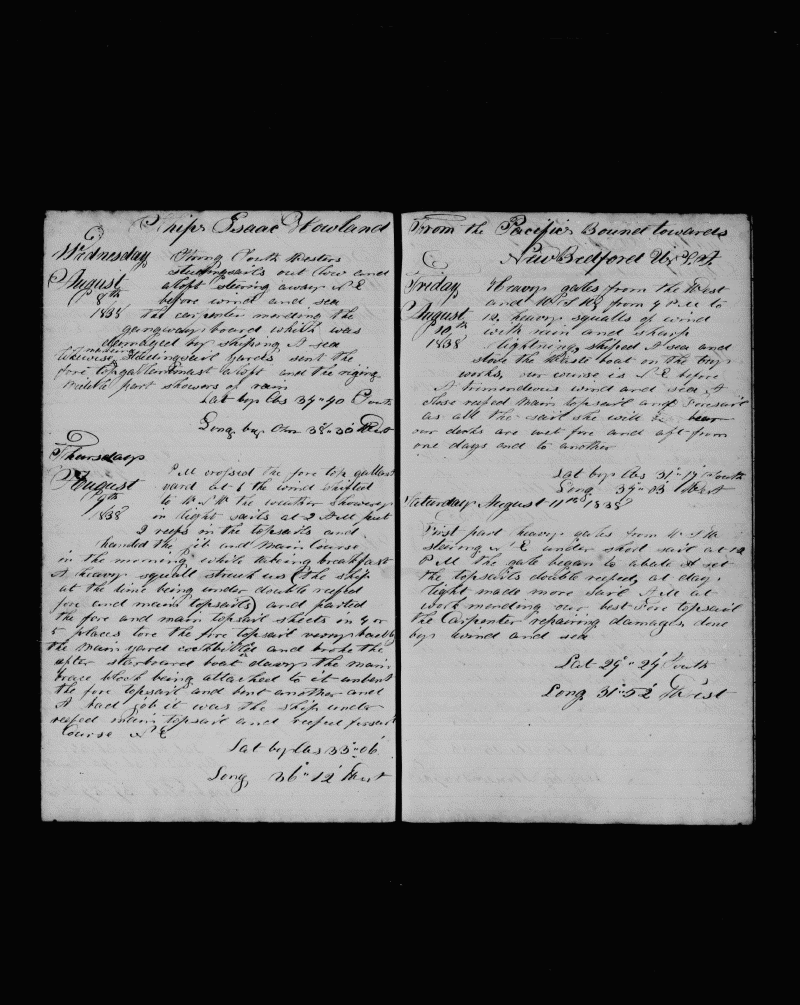 Ship Isaac Howland
Wednesday Strong South Westers
studingsails out low and
August aloft steering away N E
8th before wind and sea
1838 the carpenter mending the
gangway board which was
damaged by shiping A sea
likewise mending Studingsail yards sent the
fore topgallantmast aloft and the riging
part showers of rain
Lat by Obs 34" 40 South
Long by Chro 38" 30 West
Thursday
P M crossed the fore top gallant
August yard at 6 the wind shifted
9th to W S W the weather showery
1838 in light sails at 2 A M put
2 reefs in the topsails and
handed the jib and main Course
in the morning while takeing breakfast
A heavy squall struck us (the ship
at the time being under double reefed
fore and main topsails) and parted
the fore and main topsail sheets in 4 or
5 places tore the fore topsail very badly
the main yard cockbilled and broke the
after starboard boat davy the main
brace block being attached to it unbent
the fore topsail and bent another and
A bad job it was the ship under
reefed main topsail and reefed foresail
Course N E
Lat by Obs 33" 06'
Long 36" 12' West
From the Pacific Bound towards
New Bedford U S A
Friday Heavy gales from the West
and W S W from 9 P M to
August 12 heavy squalls of wind
10th with rain and sharp
1838 lightning shiped A sea and
stove the Waist boat on the
works, our course is N E before
A tremendous wind and sea A
close reefed Main topsail and Foresail
as all the sail she will bear
our decks are wet fore and aft from
one days end to another
Lat by Obs 31" 17' South
Long 34" 03' West
Saturday August 11th 1838
First part heavy gales from W S W
steering N E under short sail at 12
P M the gale began to abate & set
the topsails double reefed, at day
light made more Sail A M at
work mending our best Fore topsail
the Carpenter repairing damages done
by wind and sea
Lat 29" 24' South
Long 31" 52' West